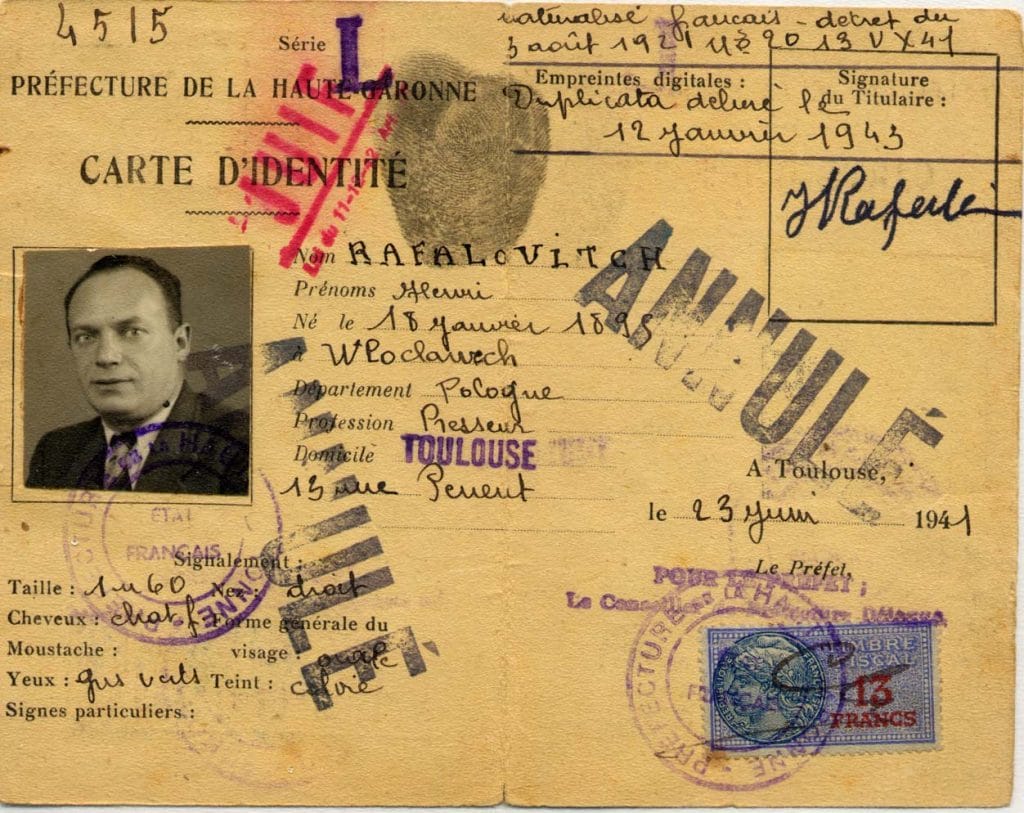 4515
Série L
PRÉFECTURE DE LA HAUTE-GARONNE
CARTE D'IDENTITÉ
JUIF
Loi du 11-12-42 Art
naturalisé français - décret du
août 192
Empreintes digitales :
Duplicata délivré le
12 janvier 1943
Signature
du Titulaire :
Nom RAFALOVITCH
Prénoms Henri
Né le 18 janvier 189
à
Département Pologne
Profession Presseur
Domicile TOULOUSE
13 rue
ANNULÉ
ANNULÉ
A Toulouse,
le 23 juin 1941
Le Préfet,
POUR LE PRÉFET ;
Le Conseiller de Préfecture Délégué,
ÉTAT
FRANÇAIS
Signalement :
Taille : 1m60 Nez : droit
Cheveux : chatf Forme générale du
Moustache : visage : ovale
Yeux : gris verts Teint : coloré
Signes particuliers :
PRÉFECTURE DE LA HAUTE GARONNE
TIMBRE
FISCAL
13
FRANCS